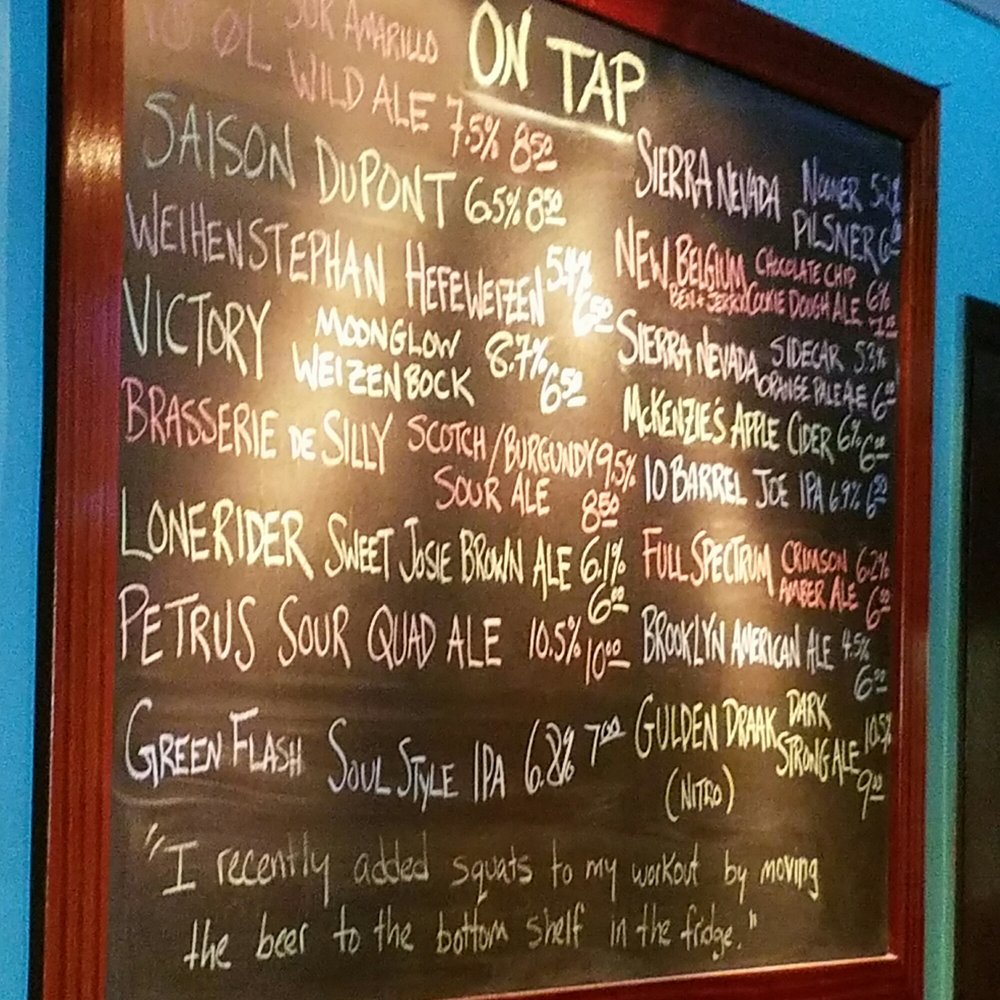 ON TAP
TO ØL SUR AMARILLO
WILD ALE 7.5% 8.50
SAISON DUPONT 6.5% 8.50
WEIHENSTEPHAN HEFEWEIZEN 5.4% 6.50
VICTORY MOONGLOW
WEIZENBOCK 8.7% 6.50
BRASSERIE DE SILLY SCOTCH/BURGUNDY 9.5%
SOUR ALE 8.50
LONERIDER SWEET JOSIE BROWN ALE 6.1%
6.00
PETRUS SOUR QUAD ALE 10.5% 10.00
GREEN FLASH SOUL STYLE IPA 6.8% 7.00
SIERRA NEVADA NOONER 5.2%
PILSNER 6.00
NEW BELGIUM CHOCOLATE CHIP
BEN & JERRY COOKIE DOUGH ALE 6%
7.00
SIERRA NEVADA SIDECAR 5.3%
ORANGE PALE ALE 6.00
McKENZIE'S APPLE CIDER 6% 6.00
10 BARREL JOE IPA 6.9% 6.50
FULL SPECTRUM CRIMSON 6.2%
AMBER ALE 6.00
BROOKLYN AMERICAN ALE 4.5%
6.00
GULDEN DRAAK DARK
STRONG ALE 10.5%
(NITRO) 9.00
"I recently added squats to my workout by moving
the beer to the bottom shelf in the fridge."